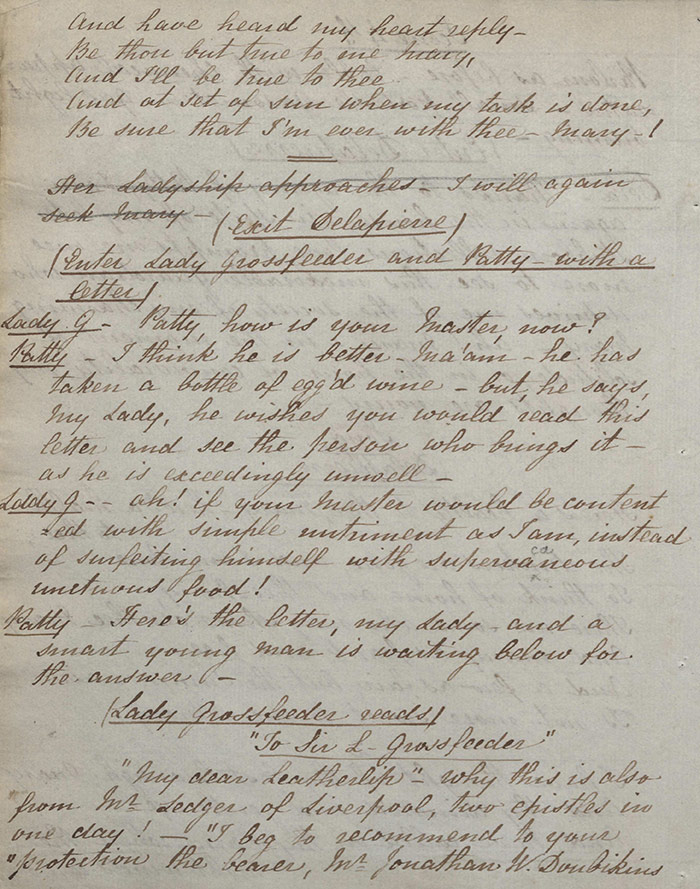 And have heard my heart reply—
Be thou but true to me Mary,
And I'll be true to thee
And at set of sun when my task is done,
Be sure that I'm ever with thee — Mary —!
Her Ladyship approaches — I will again
seek Mary —
(Exit Delapierre)
(Enter Lady Grossfeeder and Patty — with a
letter)
Lady G — Patty, how is your Master, now?
Patty — I think he is better — Ma'am — he has
taken a bottle of egg'd wine — but, he says,
my Lady, he wishes you would read this
letter and see the person who brings it —
as he is exceedingly unwell —
Lady G — — ah! if your Master would be content
=ed with simple nutriment as I am, instead
of surfeiting himself with supervaneous
ca
unctuous food!
Patty — Here's the letter, my Lady — and a
smart young man is waiting below for
the answer —
(Lady Grossfeeder reads)
"To Sir L — Grossfeeder"
"My dear Leatherlip" — why this is also
from Mr Ledger of Liverpool, two epistles in
one day! — "I beg to recommend to your
"protection the bearer, Mr Jonathan W. Doubikins